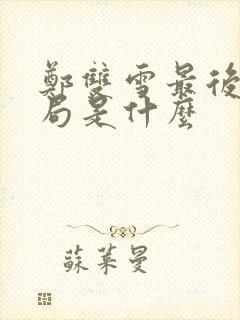 鄭雙雪最後
局是什麼
蘇萊曼